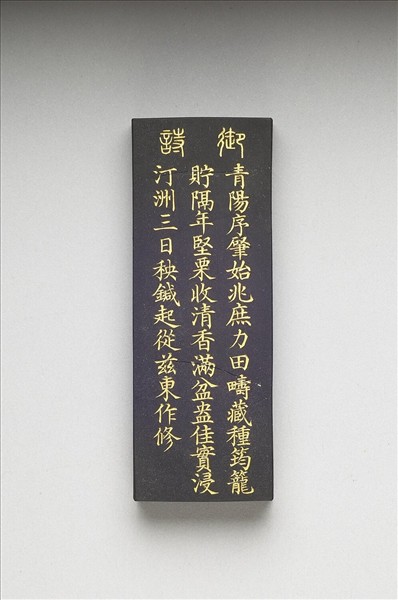 御詩
青陽序肇始兆庶力田疇藏種筠籠
貯隔年堅栗收清香滿盆盎佳實浸
汀洲三日秧鍼起從茲東作修